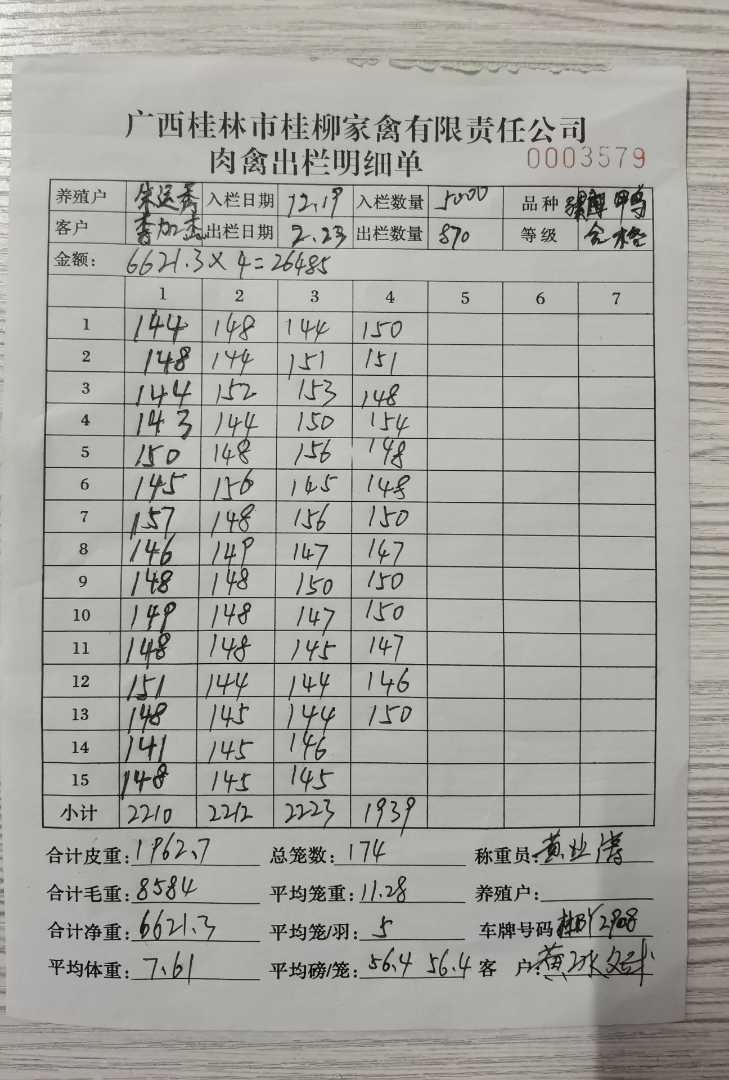 广西桂林市桂柳家禽有限责任公司
肉禽出栏明细单 0003579
养殖户 朱运秀 入栏日期 12.19 入栏数量 5000 品种 鸭
客户 李加 出栏日期 2.23 出栏数量 870 等级 合格
金额: 6621.3×4=26485
1 2 3 4 5 6 7
1 144 148 144 150
2 148 144 151 151
3 144 152 153 148
4 143 144 150 154
5 150 148 156 148
6 145 156 145 148
7 157 148 156 150
8 146 149 147 147
9 148 148 150 150
10 149 148 147 150
11 148 148 145 147
12 151 144 144 146
13 148 145 144 150
14 141 145 146
15 148 145 145
小计 2210 2212 2223 1939
合计皮重: 1962.7 总笼数: 174 称重员: 黄业
合计毛重: 8584 平均笼重: 11.28 养殖户:
合计净重: 6621.3 平均笼/羽: 5 车牌号码 2908
平均体重: 7.61 平均磅/笼: 56.4 56.4 客 户: 黄